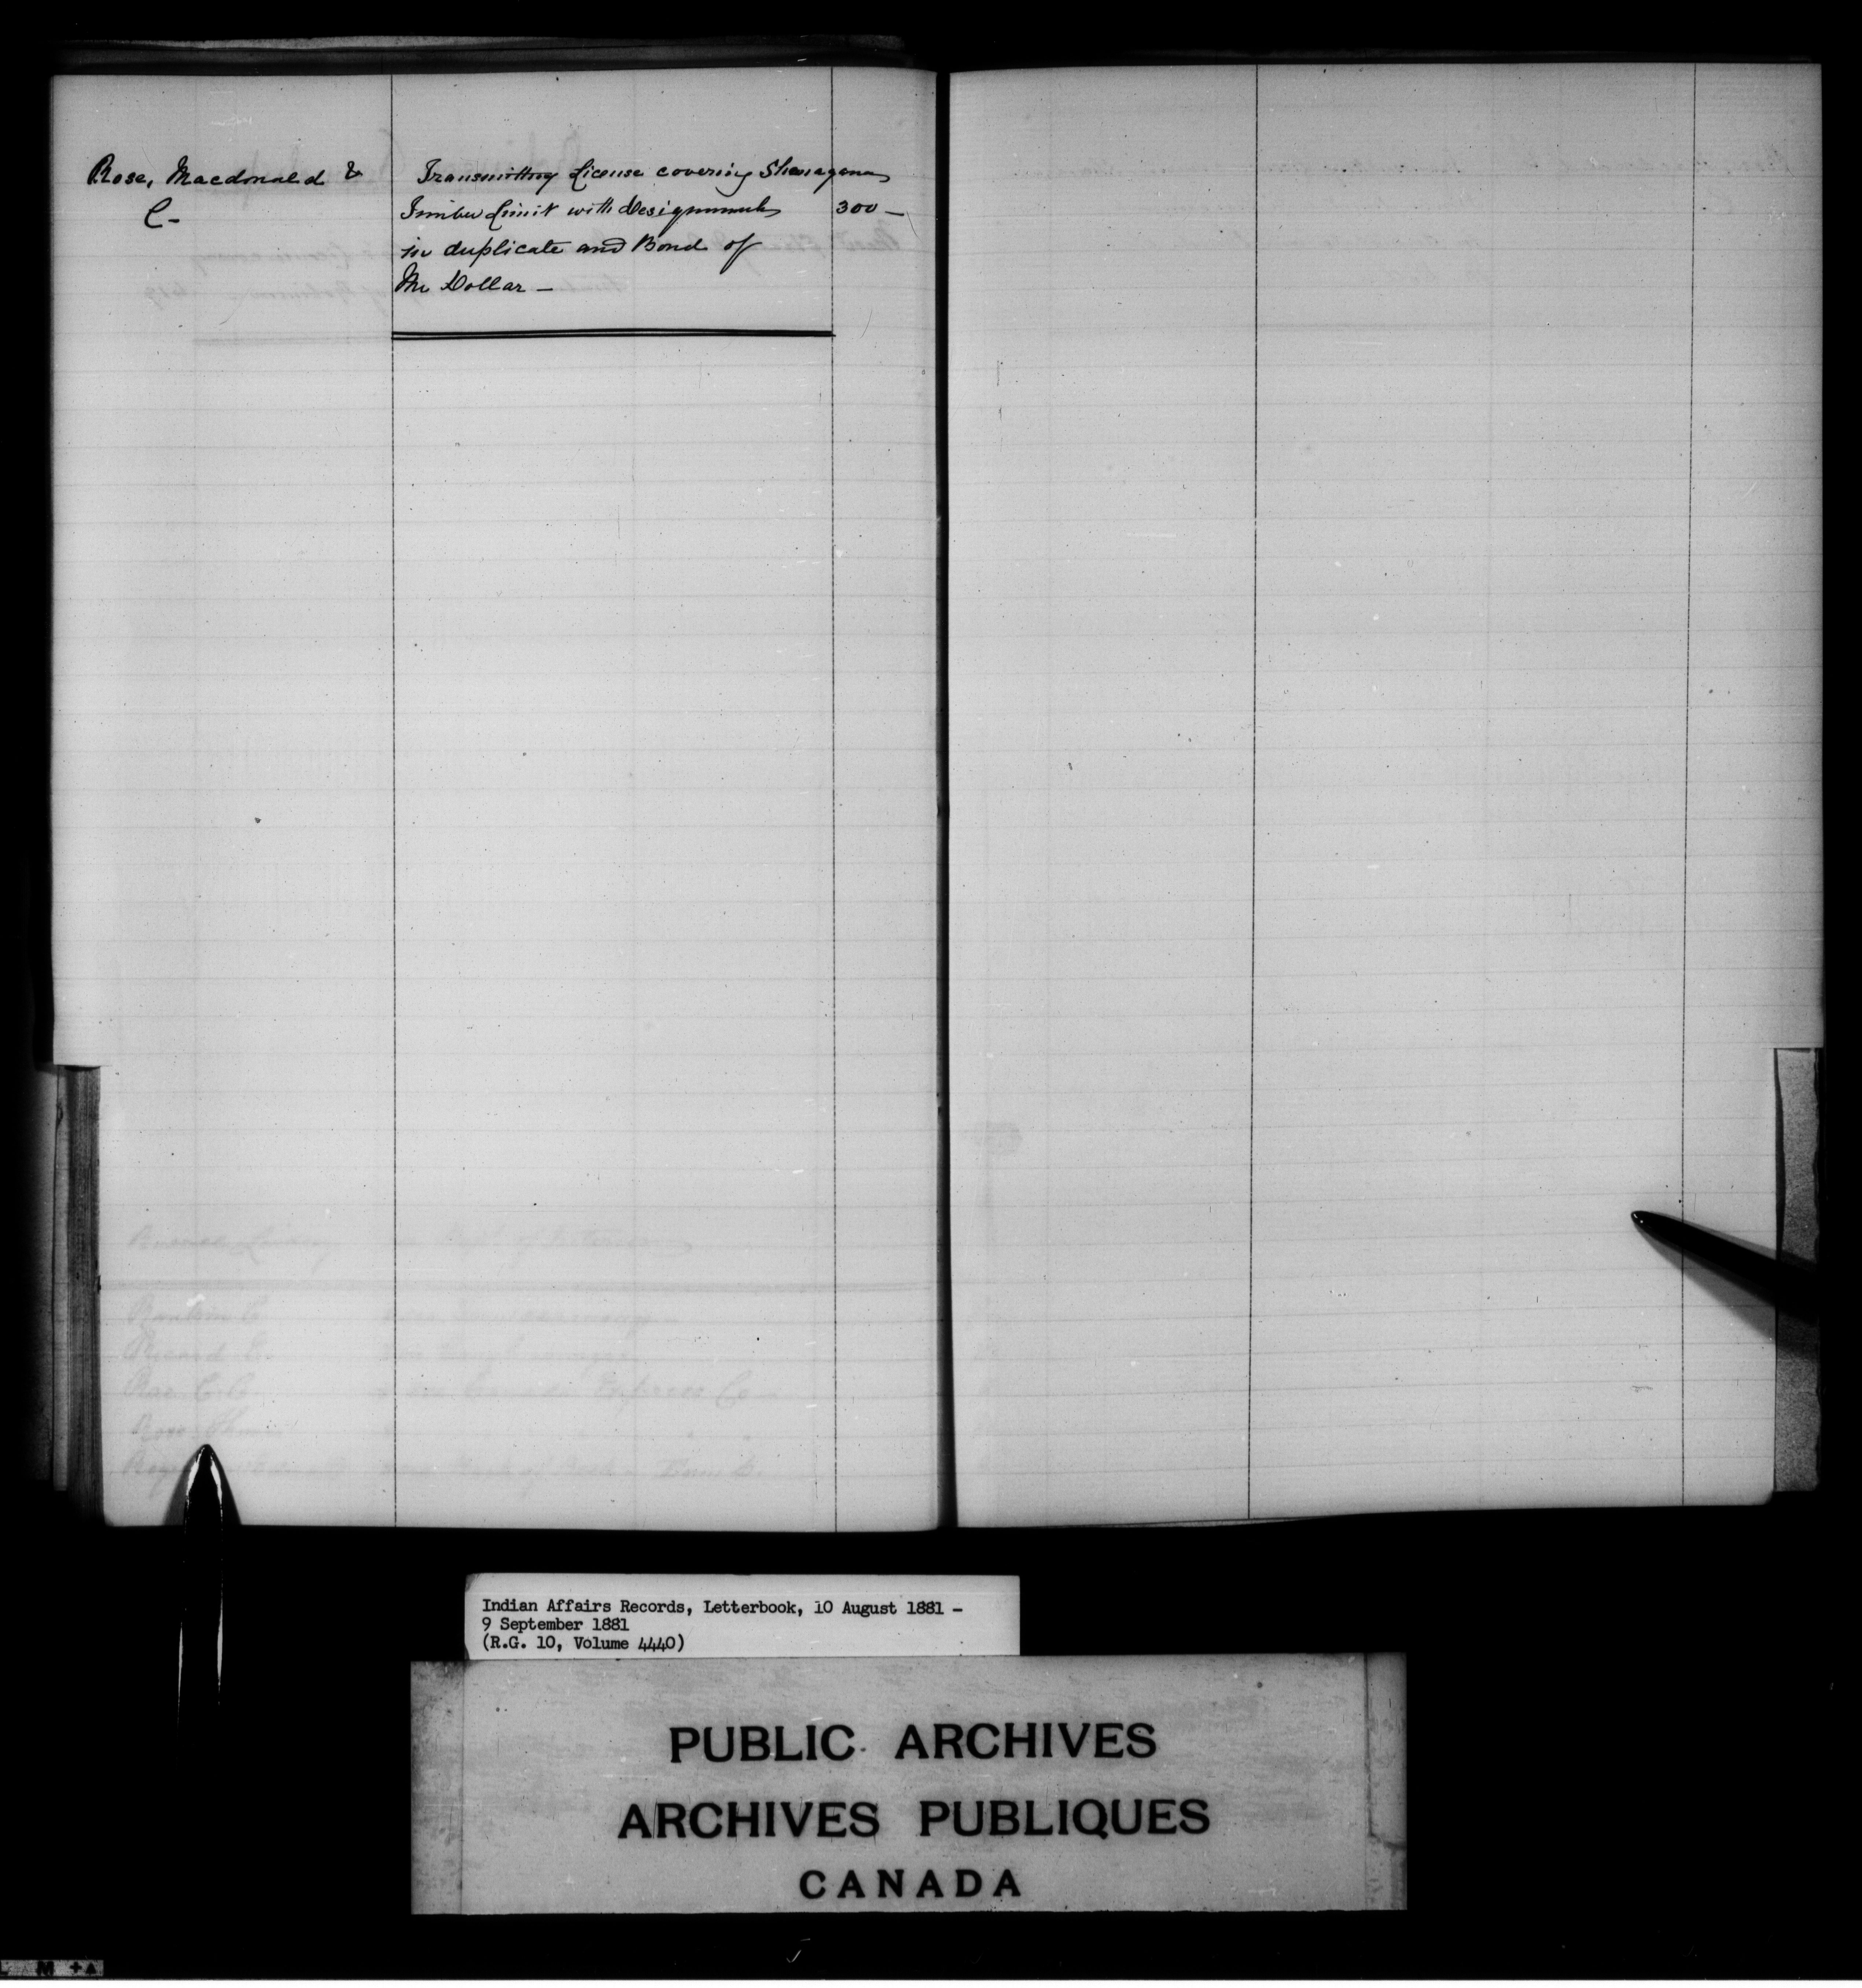 Rose, Macdonald &
C-
Transmitting License covering Shenagana
Timber Limit with Assignments 300 —
in duplicate and Bond of
Mr Dollar —
Indian Affairs Records, Letterbook, 10 August 1881 –
9 September 1881
(R.G. 10, Volume 4440)
PUBLIC ARCHIVES
ARCHIVES PUBLIQUES
CANADA